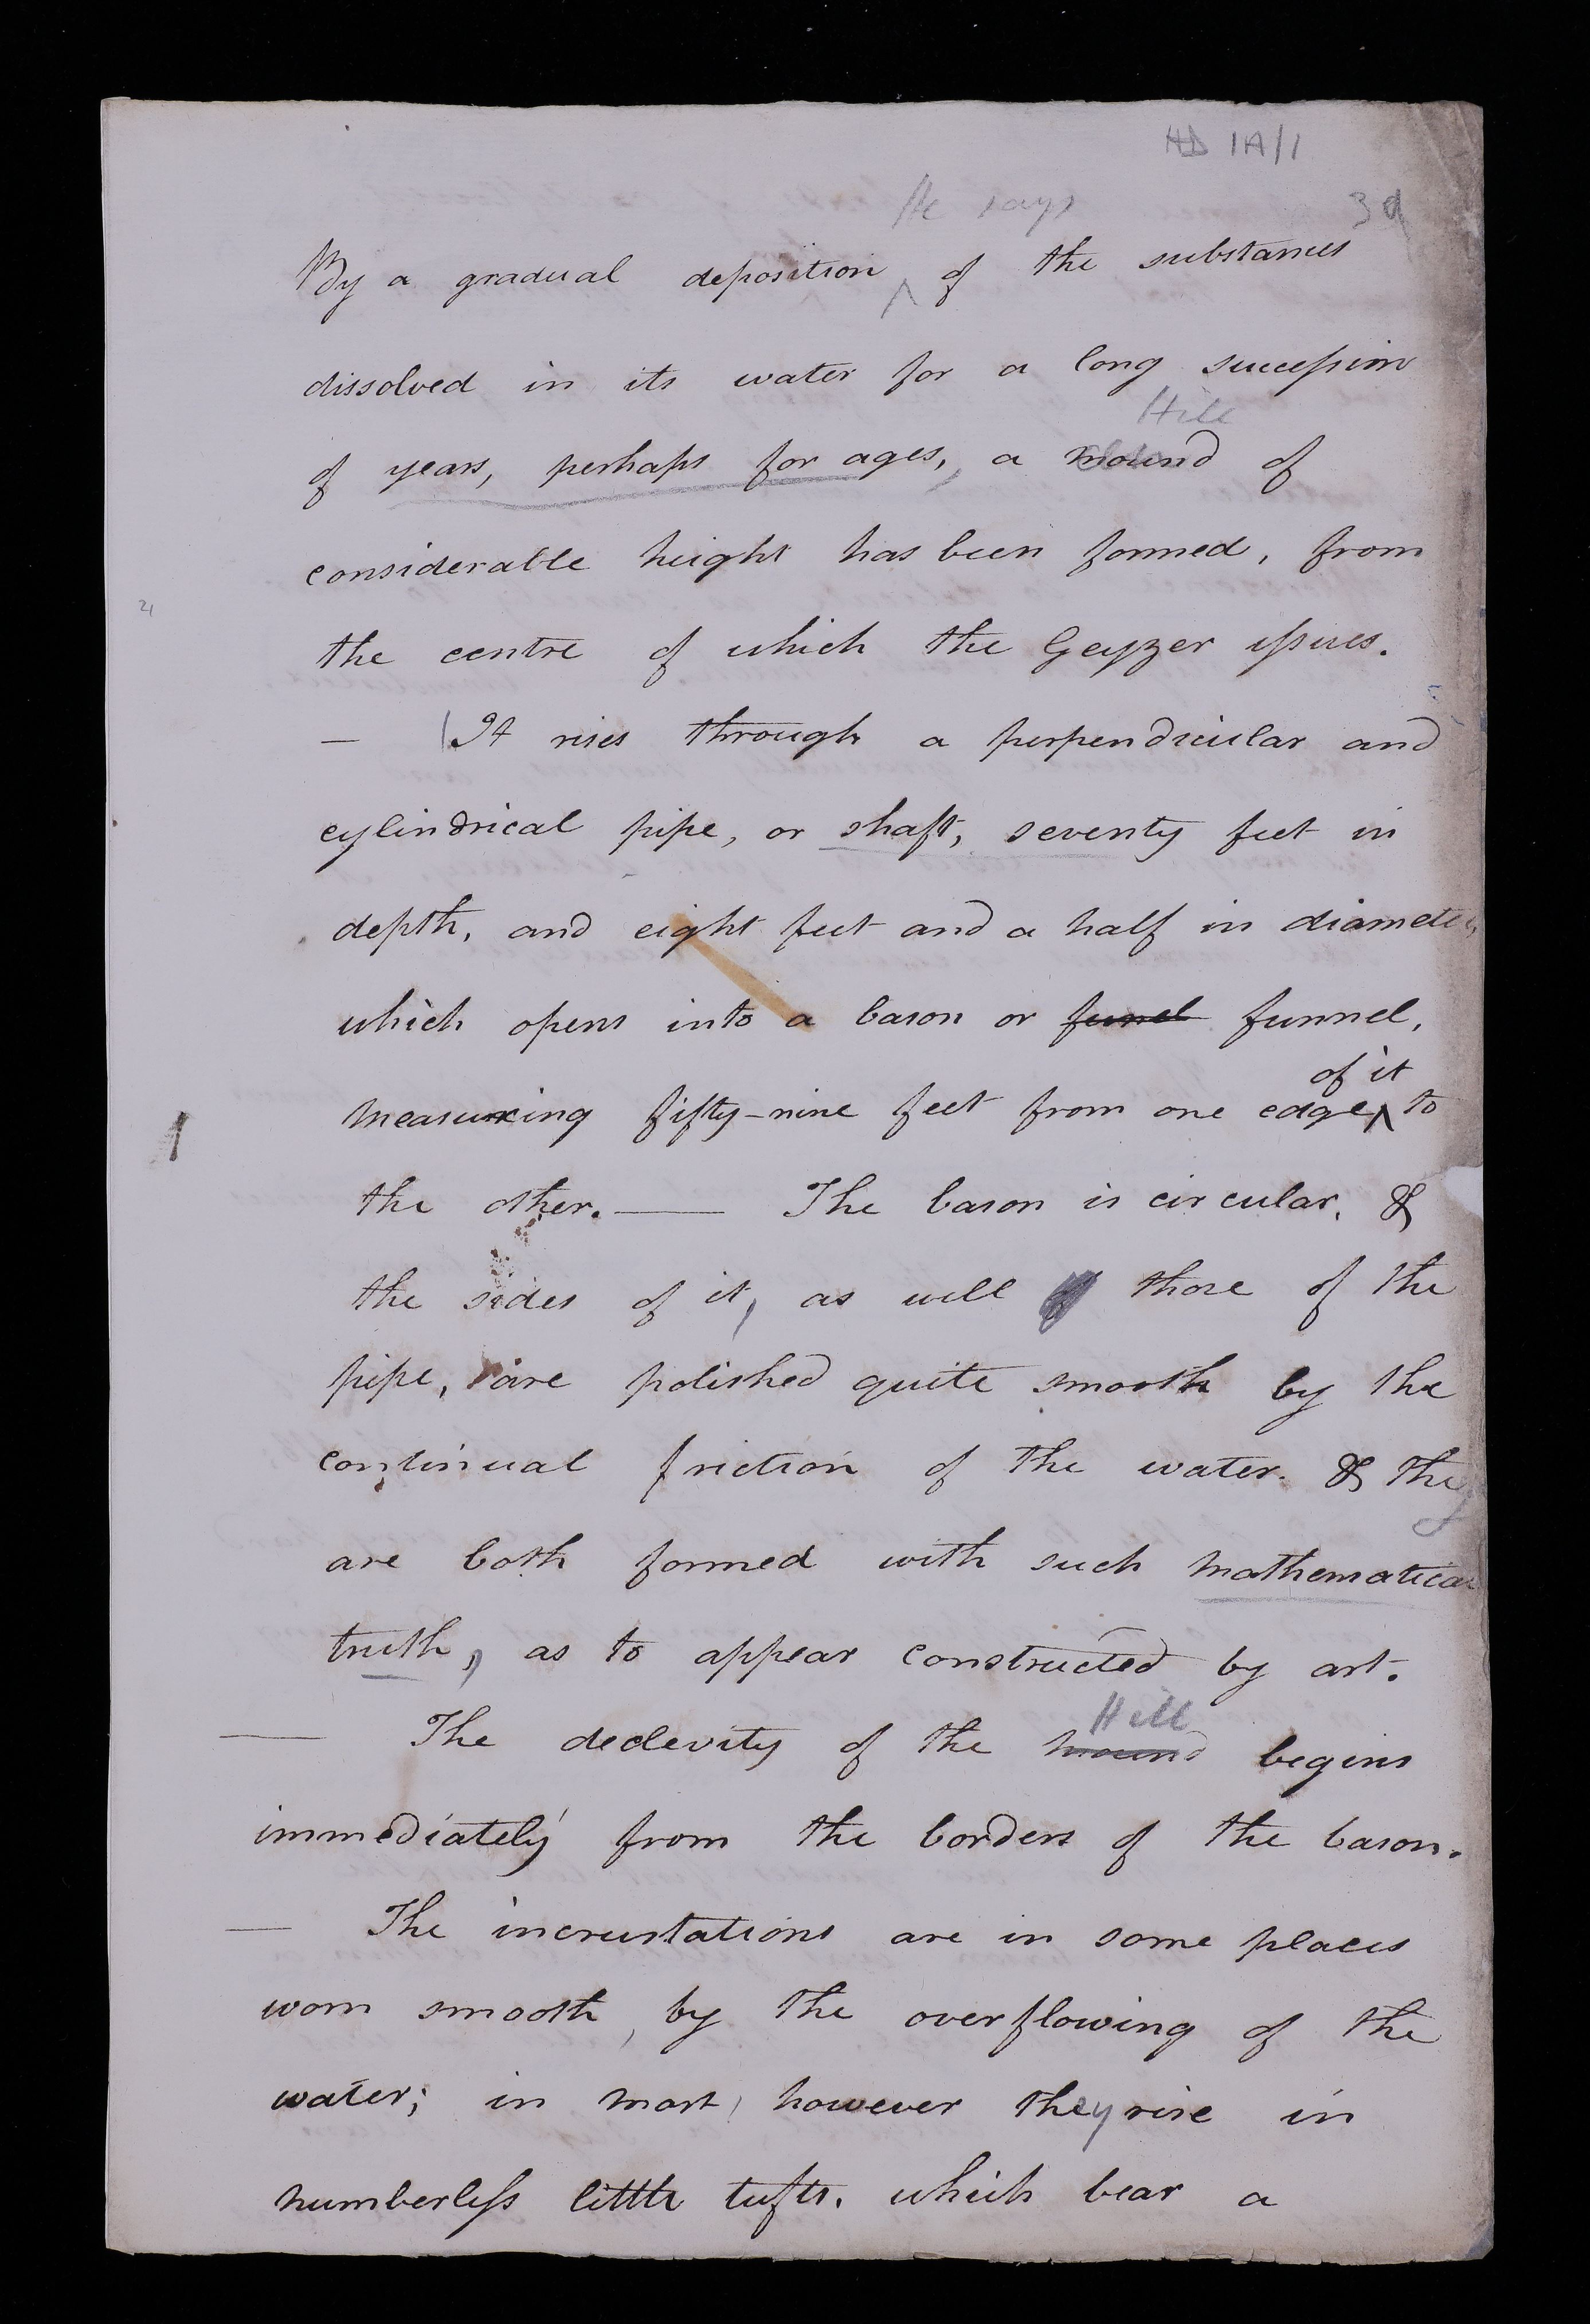 HD 1A/1
He says 3d
By a gradual deposition ^ of the substances
dissolved in its water for a long succession
Hill
of years, perhaps for ages, a mound of
considerable height has been formed, from
the centre of which the Geyzer issues.
— It rises through a perpendicular and
cylindrical pipe, or shaft, seventy feet in
depth, and eight feet and a half in diameter,
which opens into a bason or funel funnel,
of it
measuring fifty-nine feet from one edge ^ to
the other. — The bason is circular, &
the sides of it, as well those of the
pipe, are polished quite smooth by the
continual friction of the water. & they
are both formed with such mathematical
truth, as to appear constructed by art.
Hill
— The declevity of the mound begins
immediately from the borders of the bason.
— The incrustations are in some places
worn smooth, by the overflowing of the
water; in most, however they rise in
numberless little tufts, which bear a